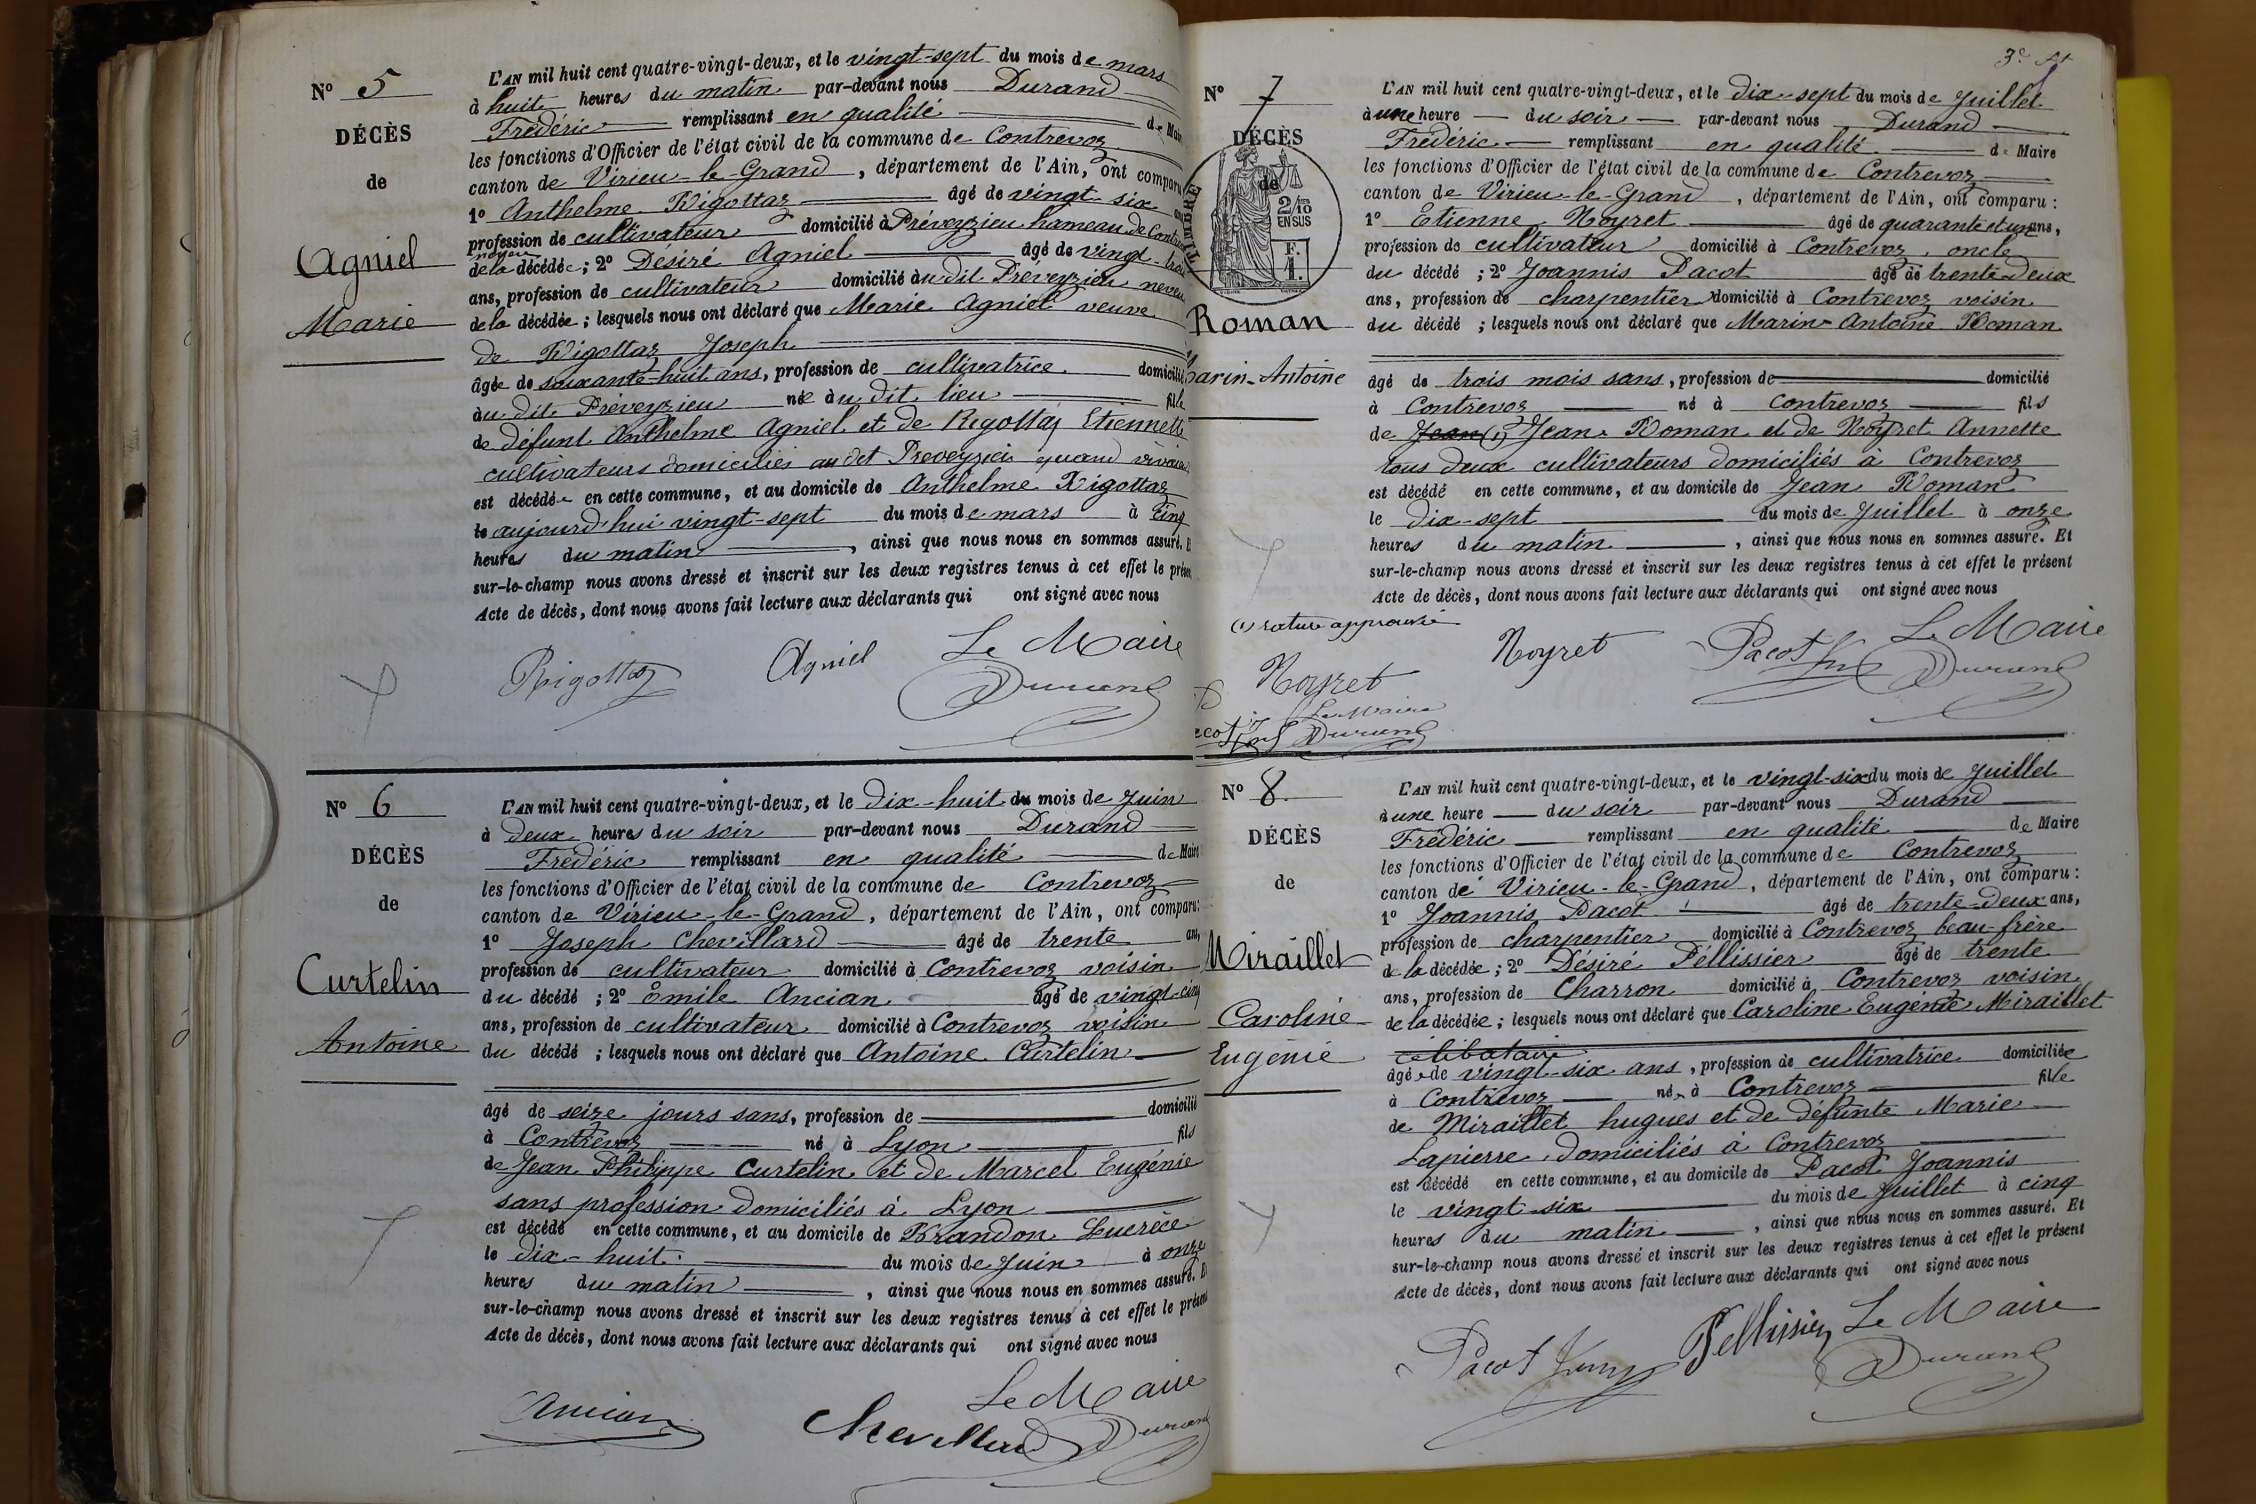 N° 5
DÉCÈS
de
Agniel
Marie
L'AN mil huit cent quatre-vingt-deux, et le vingt-sept du mois de mars
à huit heures du matin par-devant nous Durand
Frédéric remplissant en qualité de Mair
les fonctions d'Officier de l'état civil de la commune de Contrevoz
canton de Virieu-le-Grand, département de l'Ain, ont comparu
1° Anthelme Rigottaz âgé de vingt six
profession de cultivateur domicilié à Préveyzieu hameau de Contre
neveu
de la décédée; 2° Désiré Agniel âgé de vingt-trois
ans, profession de cultivateur domicilié au dit Préveyzieu neveu
de la décédée; lesquels nous ont déclaré que Marie Agniel veuve
de Rigottaz Joseph
âgée de soixante-huit ans, profession de cultivatrice domicilié
au dit Préveyzieu née au dit lieu fille
de défunt Anthelme Agniel et de Rigottaz Etiennette
cultivateurs domiciliés au dit Preveyzieu quand vivaient
est décédée en cette commune, et au domicile de Anthelme Rigottaz
le aujourd'hui vingt-sept du mois de mars à cinq
heures du matin, ainsi que nous nous en sommes assuré. E
sur-le-champ nous avons dressé et inscrit sur les deux registres tenus à cet effet le présen
Acte de décès, dont nous avons fait lecture aux déclarants qui ont signé avec nous
Rigottaz Agniel Le Maire
Durand
N° 6
DÉCÈS
de
Curtelin
Antoine
L'AN mil huit cent quatre-vingt-deux, et le dix-huit du mois de Juin
à deux heures du soir par-devant nous Durand
Frédéric remplissant en qualité de Maire
les fonctions d'Officier de l'état civil de la commune de Contrevoz
canton de Virieu-le-Grand, département de l'Ain, ont comparu:
1° Joseph Chevillard âgé de trente ans,
profession de cultivateur domicilié à Contrevoz voisin
du décédé; 2° Émile Ancian âgé de vingt-cinq
ans, profession de cultivateur domicilié à Contrevoz voisin
du décédé; lesquels nous ont déclaré que Antoine Curtelin
âgé de seize jours sans, profession de domicilié
à Contrevoz né à Lyon fils
de Jean Philippe Curtelin et de Marcel Eugénie
sans profession domiciliés à Lyon
est décédé en cette commune, et au domicile de Brandon Lucrèce
le dix-huit du mois de Juin à onze
heures du matin, ainsi que nous nous en sommes assuré. E
sur-le-champ nous avons dressé et inscrit sur les deux registres tenus à cet effet le présent
Acte de décès, dont nous avons fait lecture aux déclarants qui ont signé avec nous
Le Maire
Ancian Chevillard Durand
3e ft
N° 7
DÉCÈS
de
TIMBRE
2/10 EN SUS
F. 1.
Roman
Marin-Antoine
L'AN mil huit cent quatre-vingt-deux, et le dix-sept du mois de Juillet
à une heure du soir par-devant nous Durand
Frédéric remplissant en qualité de Maire
les fonctions d'Officier de l'état civil de la commune de Contrevoz
canton de Virieu-le-Grand, département de l'Ain, ont comparu:
1° Etienne Noyret âgé de quarante et un ans,
profession de cultivateur domicilié à Contrevoz oncle
du décédé; 2° Joannis Pacot âgé de trente-deux
ans, profession de charpentier domicilié à Contrevoz voisin
du décédé; lesquels nous ont déclaré que Marin-Antoine Roman
âgé de trois mois sans, profession de domicilié
à Contrevoz né à Contrevoz fils
de Jean (1) Jean Roman et de Noyret Annette
tous deux cultivateurs domiciliés à Contrevoz
est décédé en cette commune, et au domicile de Jean Roman
le dix-sept du mois de Juillet à onze
heures du matin, ainsi que nous nous en sommes assuré. Et
sur-le-champ nous avons dressé et inscrit sur les deux registres tenus à cet effet le présent
Acte de décès, dont nous avons fait lecture aux déclarants qui ont signé avec nous
(1) rature approuvée
Noyret Pacot Le Maire
Durand
Noyret
Le Maire
Durand
N° 8
DÉCÈS
de
Miraillet
Caroline
Eugénie
L'AN mil huit cent quatre-vingt-deux, et le vingt-six du mois de Juillet
à une heure du soir par-devant nous Durand
Frédéric remplissant en qualité de Maire
les fonctions d'Officier de l'état civil de la commune de Contrevoz
canton de Virieu-le-Grand, département de l'Ain, ont comparu:
1° Joannis Pacot âgé de trente-deux ans,
profession de charpentier domicilié à Contrevoz beau-frère
de la décédée; 2° Désiré Péllissier âgé de trente
ans, profession de Charron domicilié à Contrevoz voisin
de la décédée; lesquels nous ont déclaré que Caroline Eugénie Miraillet
célibataire
âgée de vingt-six ans, profession de cultivatrice domiciliée
à Contrevoz née à Contrevoz fille
de Miraillet hugues et de défunte Marie
Lapierre domiciliés à Contrevoz
est décédé en cette commune, et au domicile de Pacot Joannis
le vingt six du mois de Juillet à cinq
heures du matin, ainsi que nous nous en sommes assuré. Et
sur-le-champ nous avons dressé et inscrit sur les deux registres tenus à cet effet le présent
Acte de décès, dont nous avons fait lecture aux déclarants qui ont signé avec nous
Pacot Pellissier Le Maire
Durand